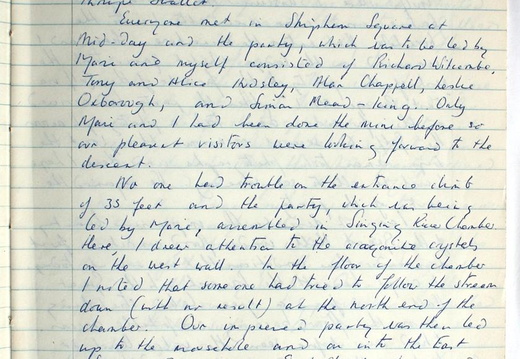 Swallet.
Everyone met in Shipham Square at
Mid-day and the party, which was to be led by
Marie and myself consisted of Richard Witcombe,
Tony and Alice Audsley, Alan Chappell, Leslie
Oxborough, and Simon Mead-King. Only
Marie and I had been done the mine before so
our pleasant visitors were looking forward to the
descent.
No one had trouble on the entrance climb
of 35 feet and the party, which was being
led by Marie, assembled in Singing River Chamber.
Here I drew attention to the aragonite crystals
on the west wall. In the floor of the chamber
I noted that someone had tried to follow the stream
down (with no result) at the north end of the
chamber. Our party was then led
up to the mousehole and on into the East